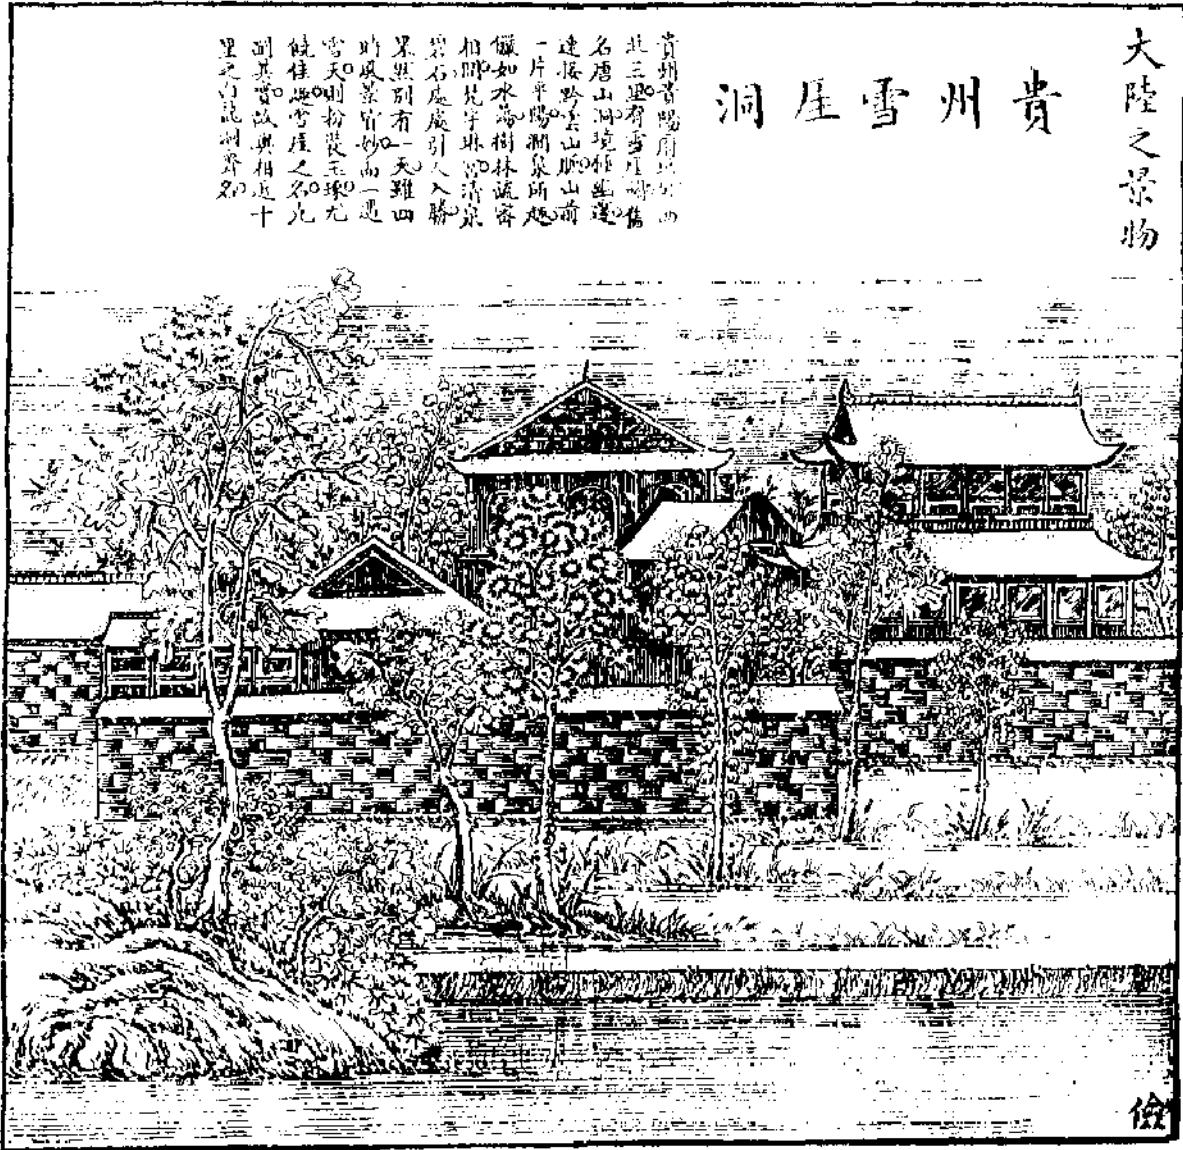 大陸之景物
貴州雪厓洞
貴州貴陽府城外西
北三里有雪厓洞舊
名唐山洞境極幽邃
連接黔靈山脈山前
一片平陽澗泉所趨
儼如水瀉樹林疏密
相間梵宇琳宮清泉
碧石處處引人入勝
果然別有一天雖四
時風景皆妙而一遇
雪天則粉裝玉琢尤
饒佳趣雪厓之名允
副其實故與相近十
里之白龍洞齊名
儉